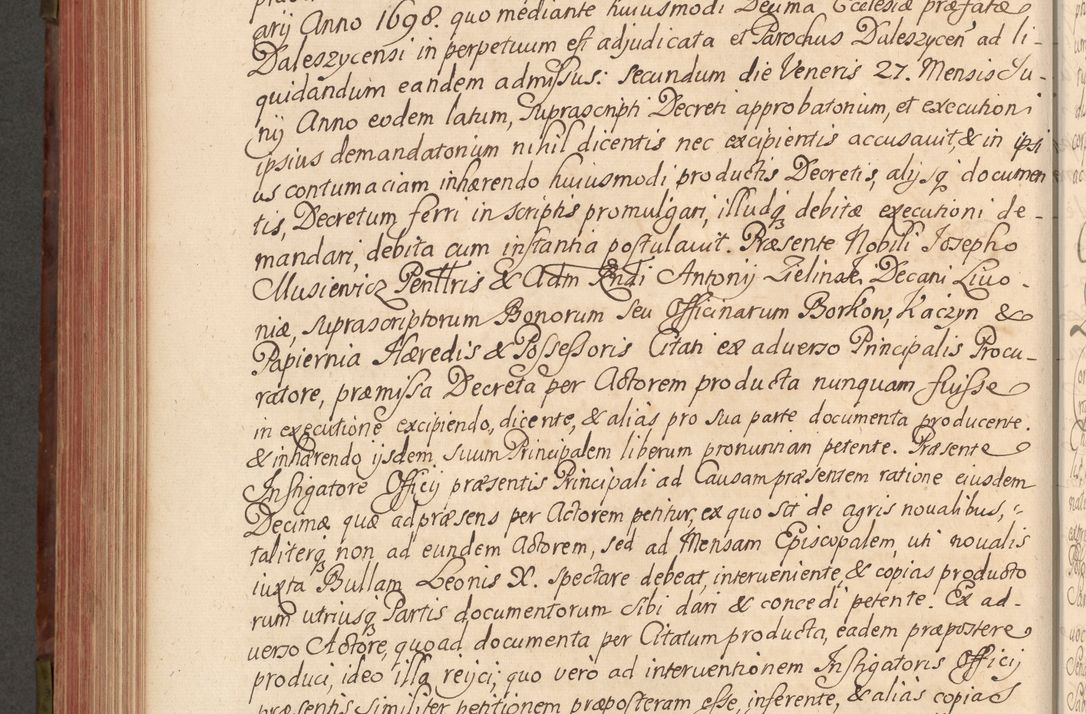 arij Anno 1698. quo mediante huiusmodi Decima Ecclesiæ præfatæ
Daleszycensi in perpetuum est adjudicata et Parochus Daleszyceñ ad li-
quidandum eandem admissus: secundum die Veneris 27. Mensis Ju-
nij Anno eodem latum, suprascripti Decreti approbatorium, et executioni
ipsius demandatorium nihil dicentis nec excipientis accusavit, & in ipsi
us contumaciam inhærendo huiusmodi productis Decretis, alijsq documen
tis, Decretum ferri in scriptis promulgari, illudq debitæ executioni de-
mandari, debita cum instantia postulavit. Præsente Nobili Josepho
Musiewicz Penttris & Adm Rndi Antonij Zielinski Decani Livo-
niæ, suprascriptorum Bonorum seu Officinarum Borkow, Kaczyn &
Papiernia Hæredis & Possessoris Citati ex adverso Principalis Procu-
ratore, præmissa Decreta per Actorem producta nunquam fuisse
in executione excipiendo, dicente, & alias pro sua parte documenta producente.
& inhærendo ijsdem, suum Principalem liberum pronunciari petente. Præsente
Instigatore Officij præsentis Principali ad Causam præsentem ratione eiusdem
Decimæ quæ ad præsens per Actorem petitur, ex quo sit de agris novalibus,
taliterq non ad eundem Actorem, sed ad Mensam Episcopalem, uti novalis
iuxta Bullam Leonis X. spectare debeat, interveniente, & copias producto
rum utriusq Partis documentorum sibi dari & concedi petente. Ex ad-
verso Actore, quoad documenta per Citatum producta, eadem præpostere
produci, ideo illa reijci; quo vero ad interventionem Instigatoris Officij
præsentis similiter petitionem præposteram esse, inferente, & alias copias